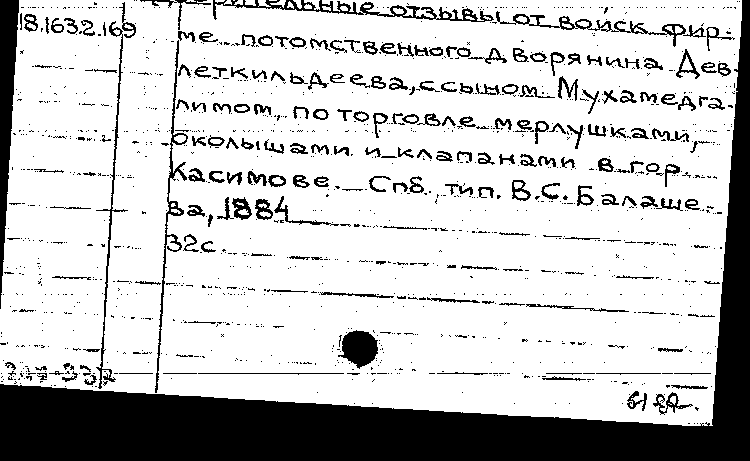 отзывы от войск фир-
18.163.2.169
ме потомственного дворянина Дев-
леткильдеева, с сыном Мухамедга-
лимом, по торговле мерлушками,
околышами и клапанами в гор.
Касимове. Спб, тип. В.С. Балаше-
ва, 1884
32с.